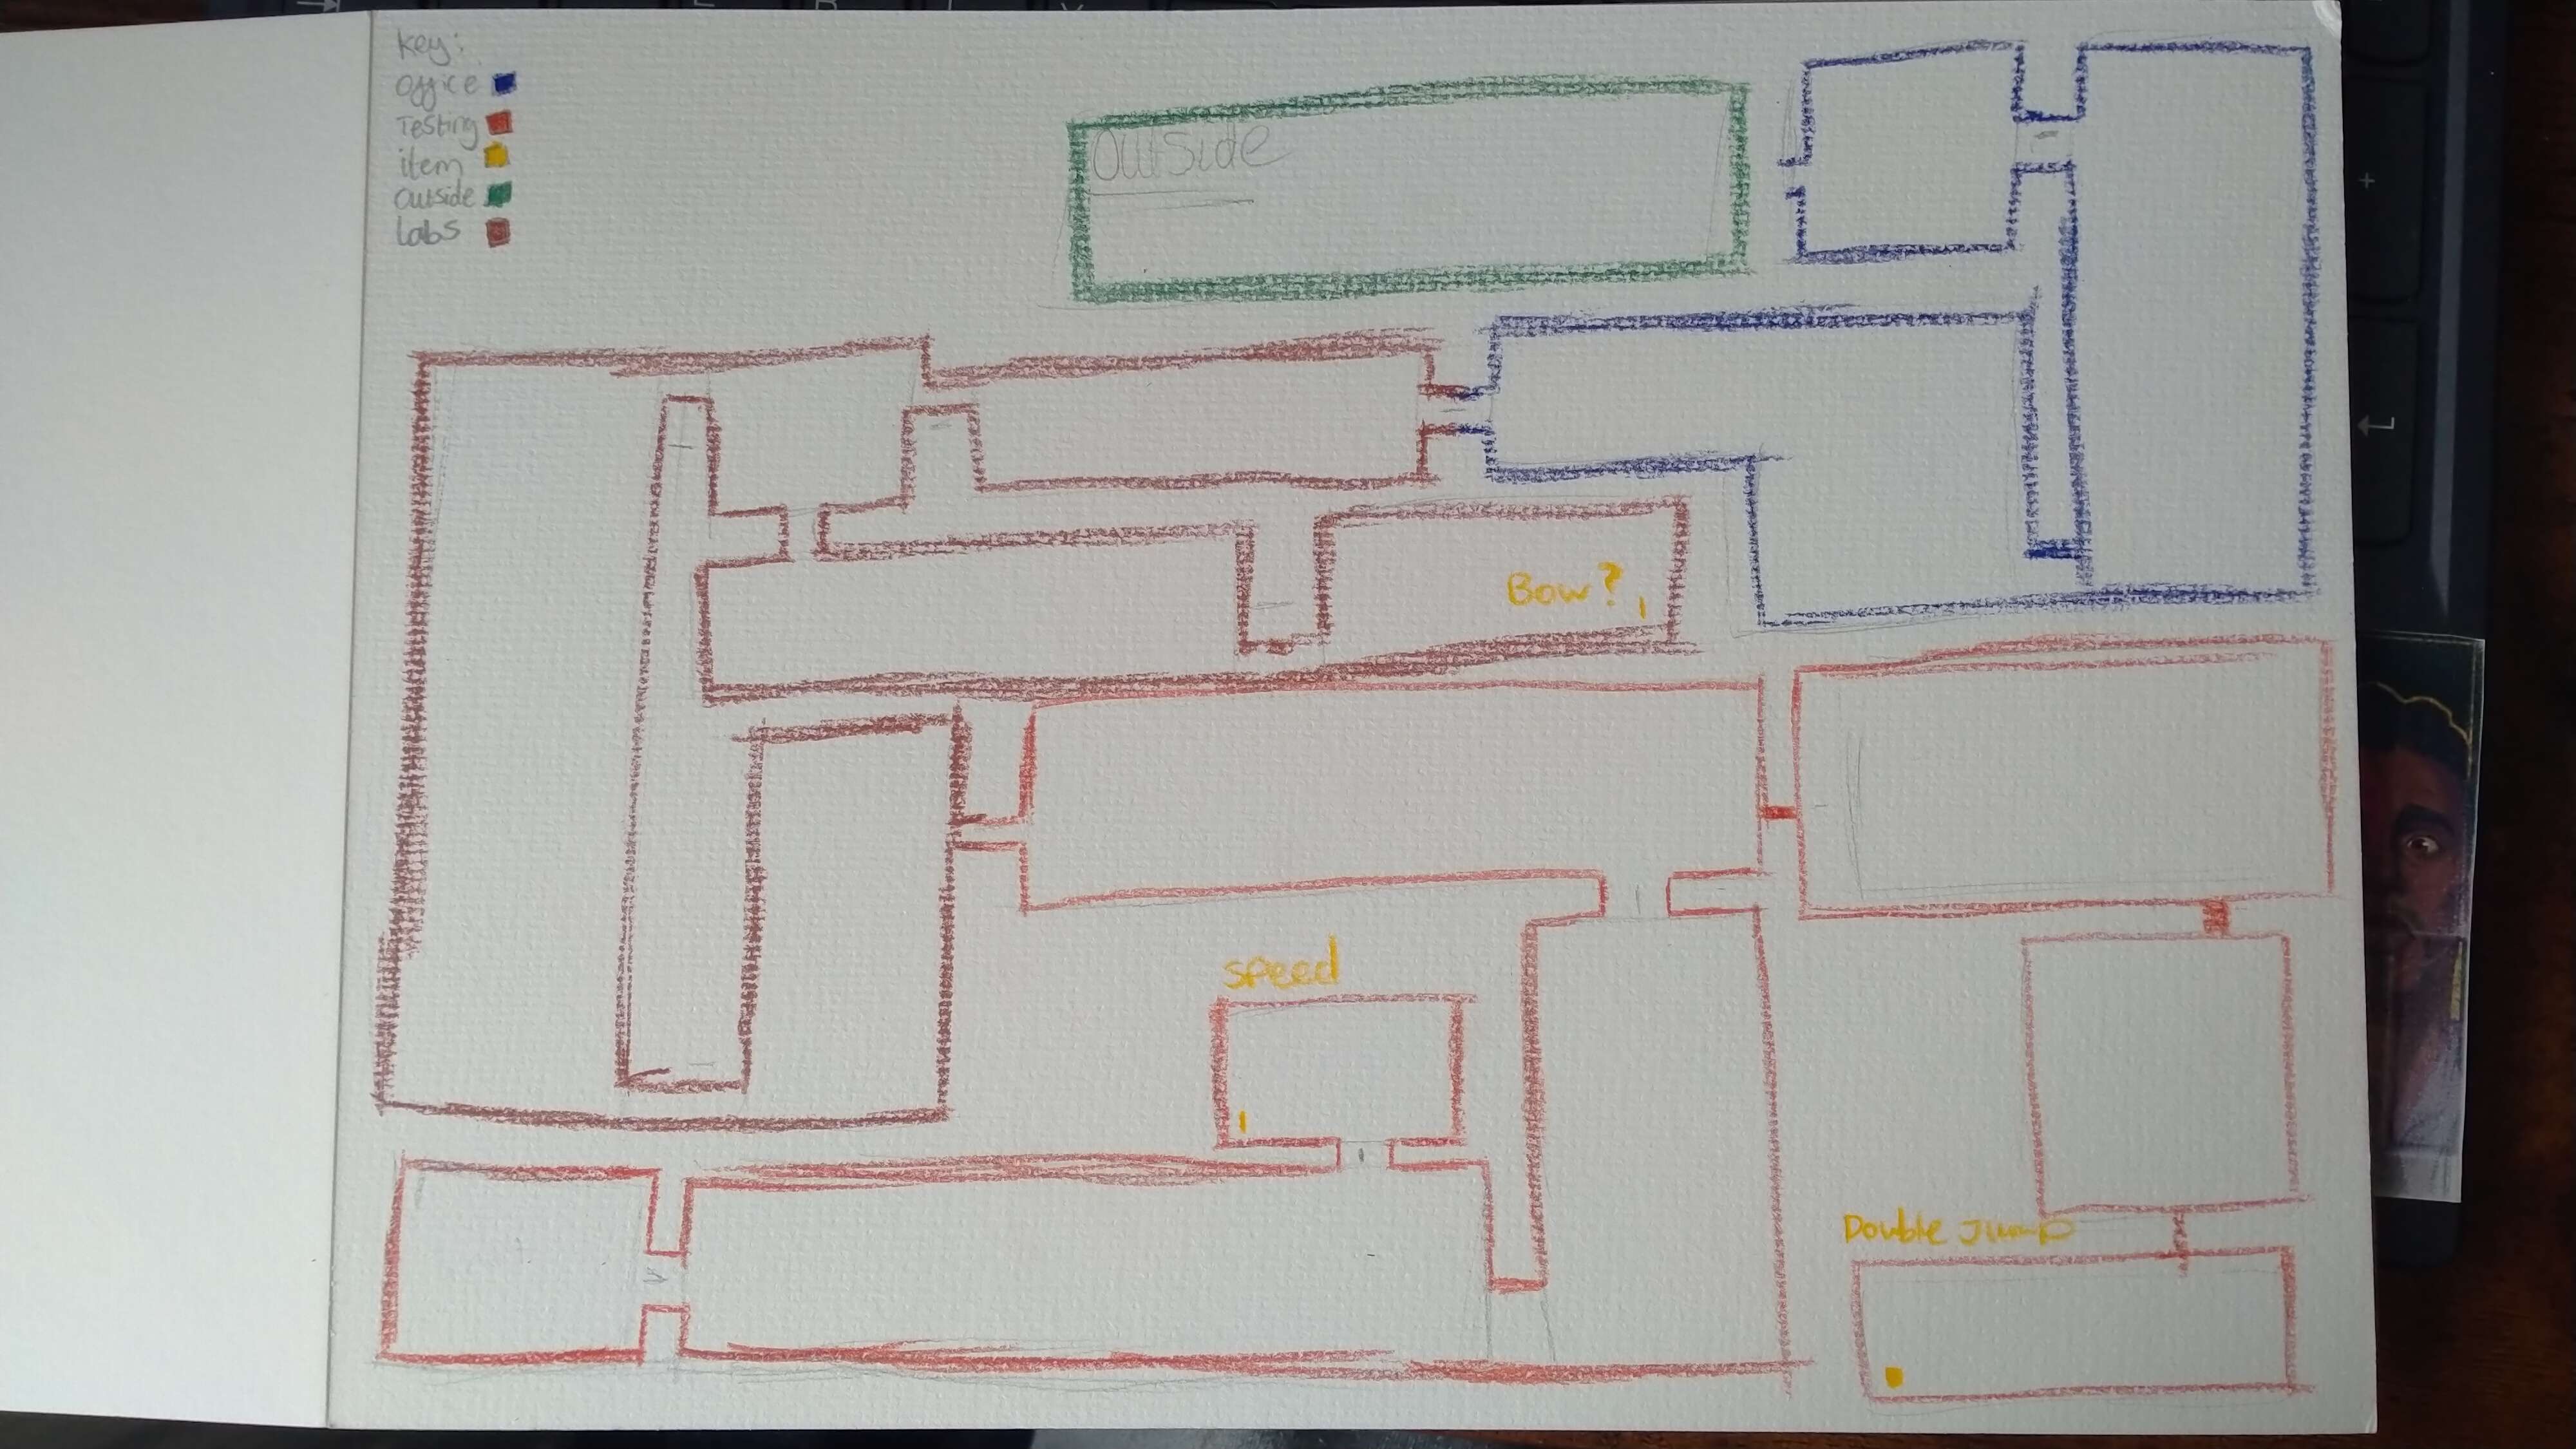 Key:
Office
Testing
item
Outside
Labs
Outside
Bow?
Speed
Double Jump